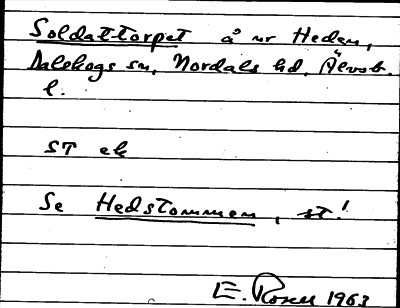 Soldattorpet å nr Heden,
Dalskogs sn, Nordals hd, Älvsb.
l.
ST ek
Se Hedstommen, st!
E. Rosell 1963